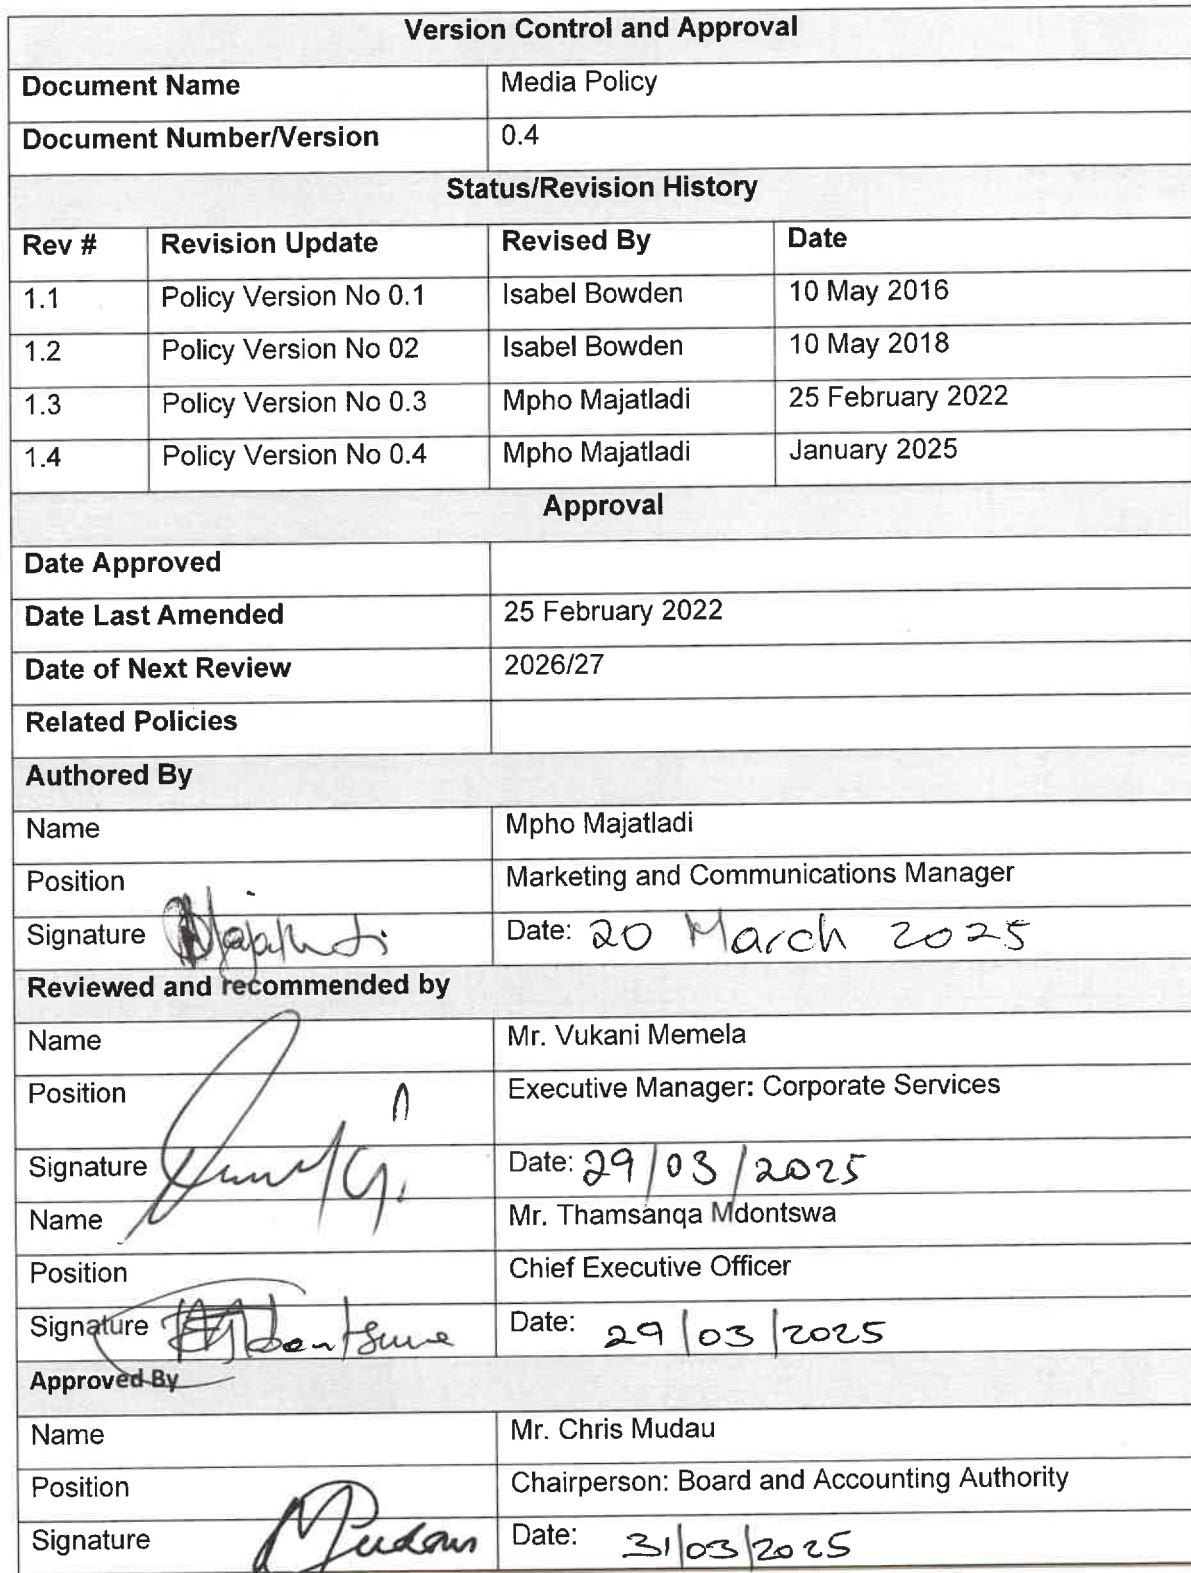 Version Control and Approval
Document Name Media Policy
Document Number/Version 0.4
Status/Revision History
Rev # Revision Update Revised By Date
1.1 Policy Version No 0.1 Isabel Bowden 10 May 2016
1.2 Policy Version No 02 Isabel Bowden 10 May 2018
1.3 Policy Version No 0.3 Mpho Majatladi 25 February 2022
1.4 Policy Version No 0.4 Mpho Majatladi January 2025
Approval
Date Approved
Date Last Amended 25 February 2022
Date of Next Review 2026/27
Related Policies
Authored By
Name Mpho Majatladi
Position Marketing and Communications Manager
Signature Date: 20 March 2025
Reviewed and recommended by
Name Mr. Vukani Memela
Position Executive Manager: Corporate Services
Signature Date: 29/03/2025
Name Mr. Thamsanqa Mdontswa
Position Chief Executive Officer
Signature Date: 29/03/2025
Approved By
Name Mr. Chris Mudau
Position Chairperson: Board and Accounting Authority
Signature Date: 31/03/2025